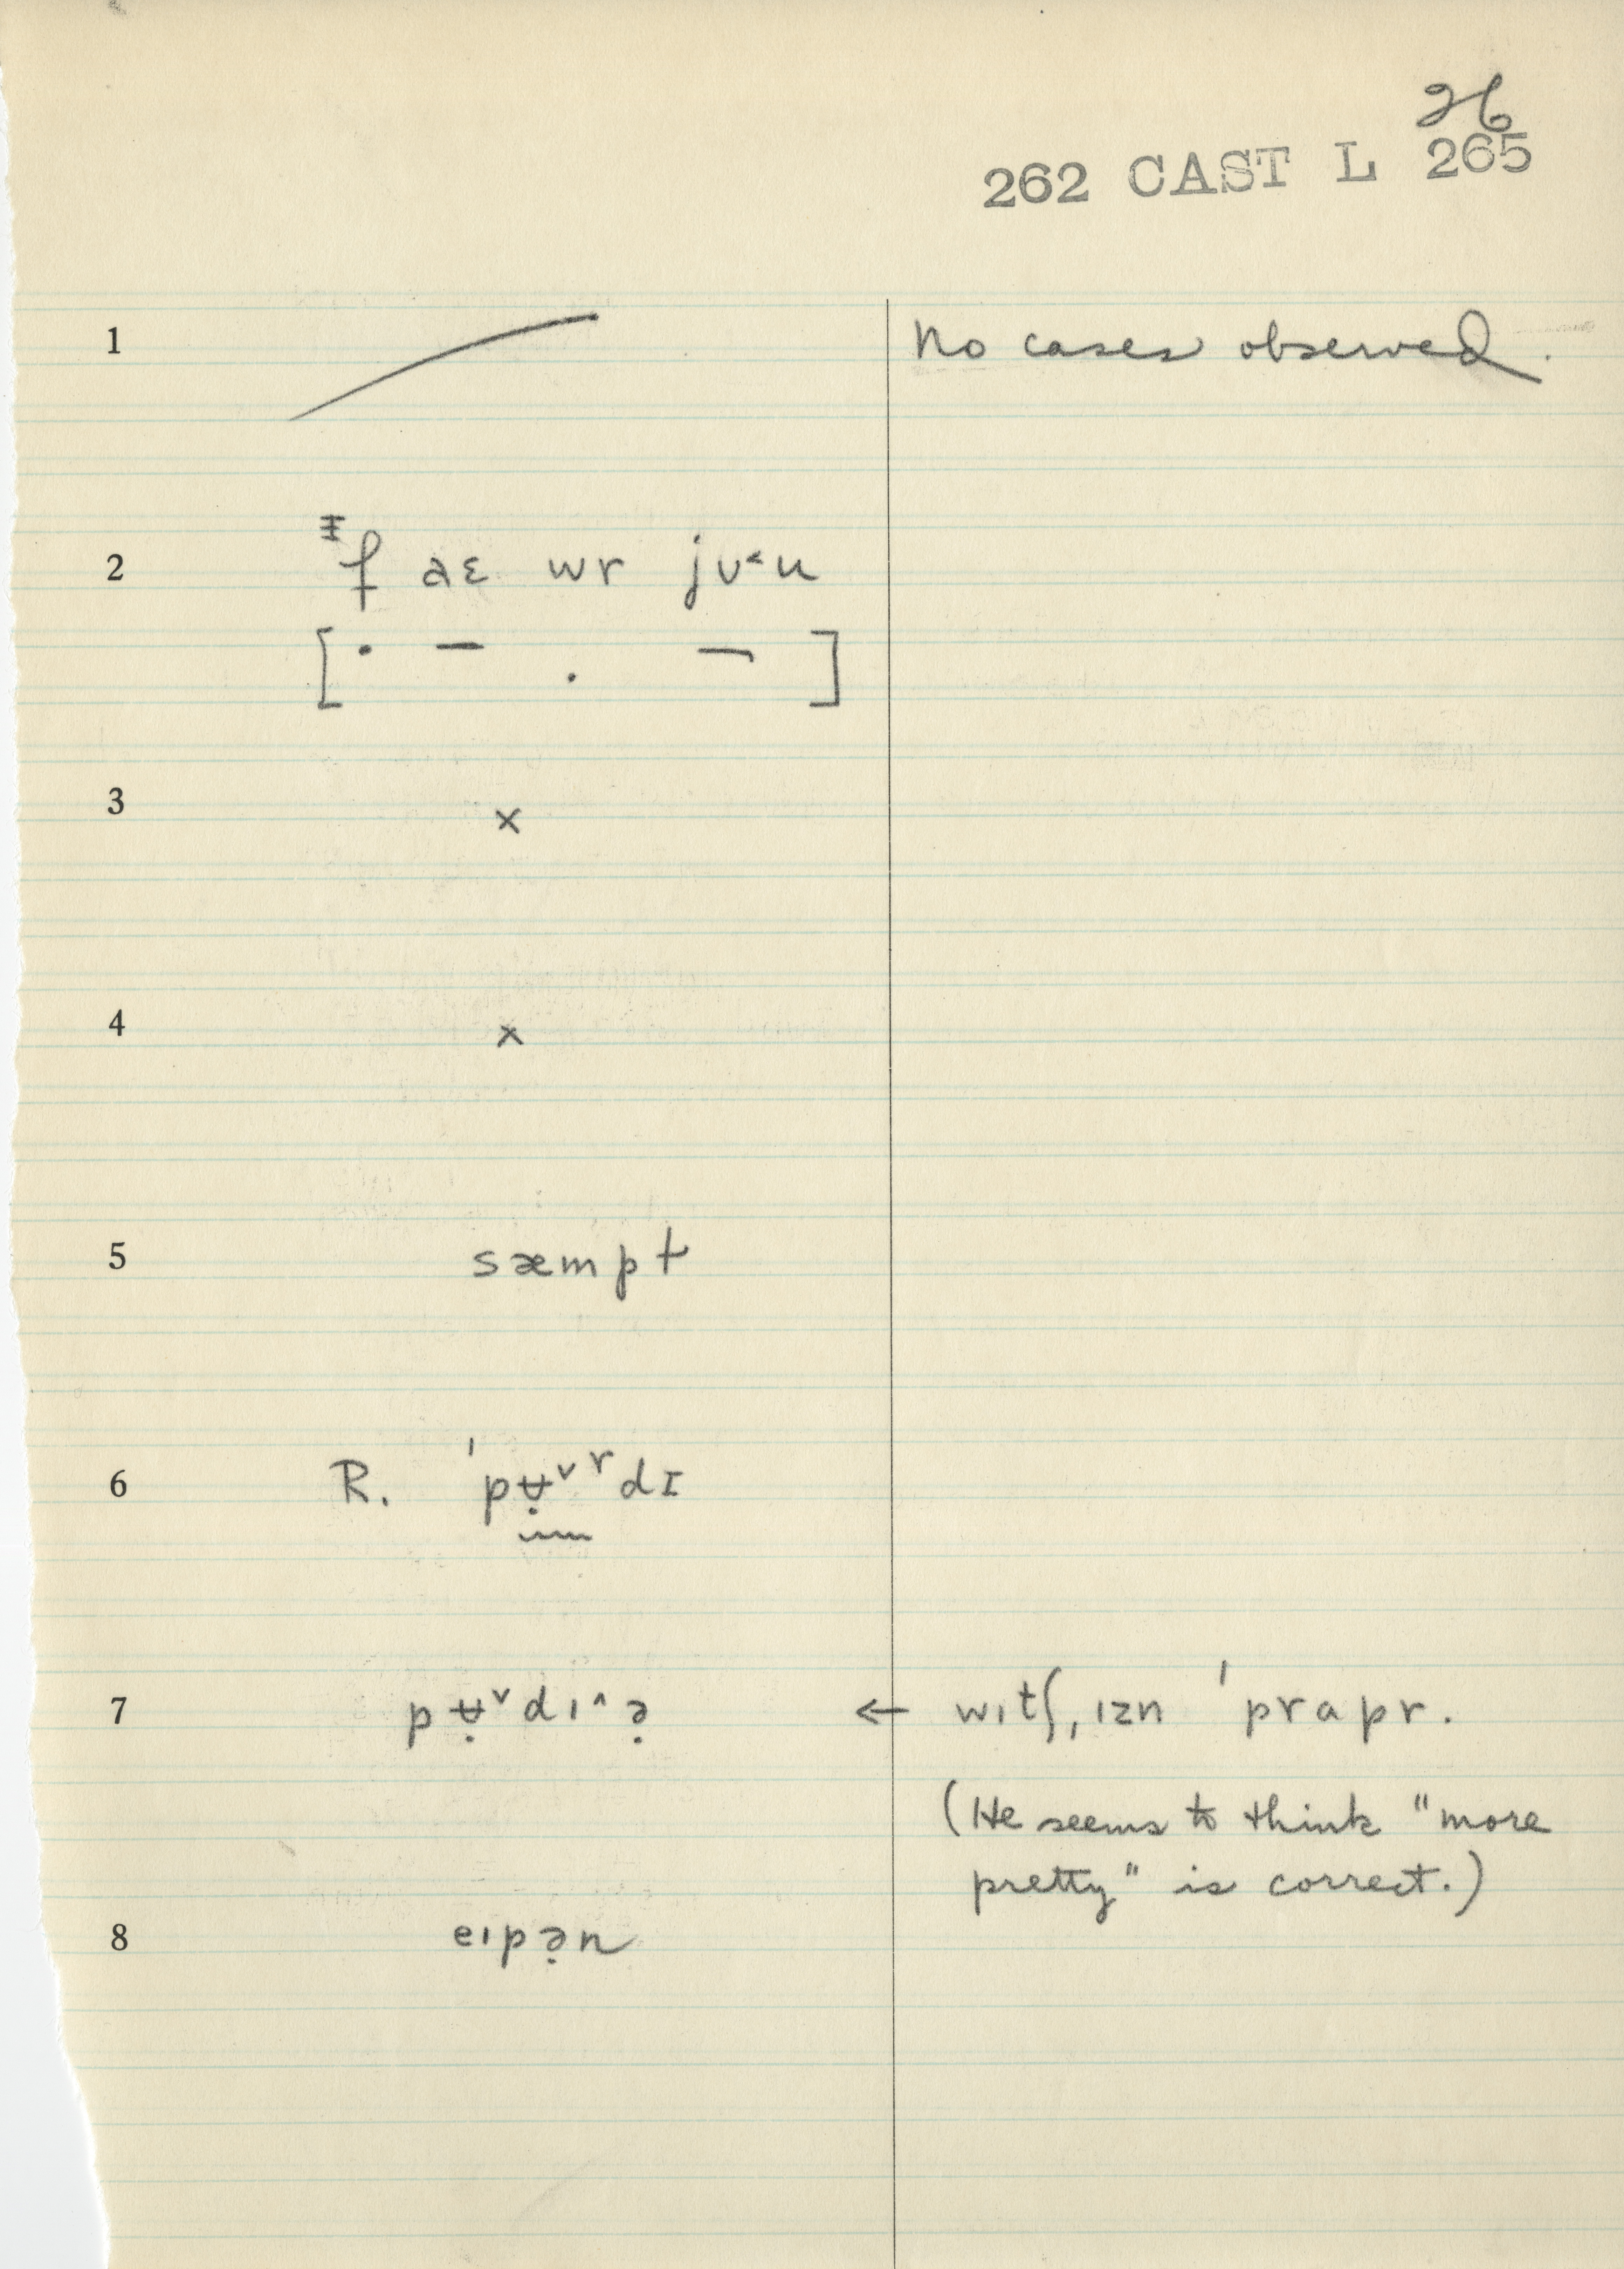 26
262 CAST L 265
1 No cases observed.
2 f aɛ wr jʊ˂u
[ ]
3 x
4 x
5 sæmpt
6 R. ˈpʉ̣ᵛʳdɪ
7 pʉ̣ᵛdɪ^ə̣ ← wɪtʃ, ɪzn ˈprapr.
(He seems to think "more
pretty" is correct.)
8 eɪpə̣n